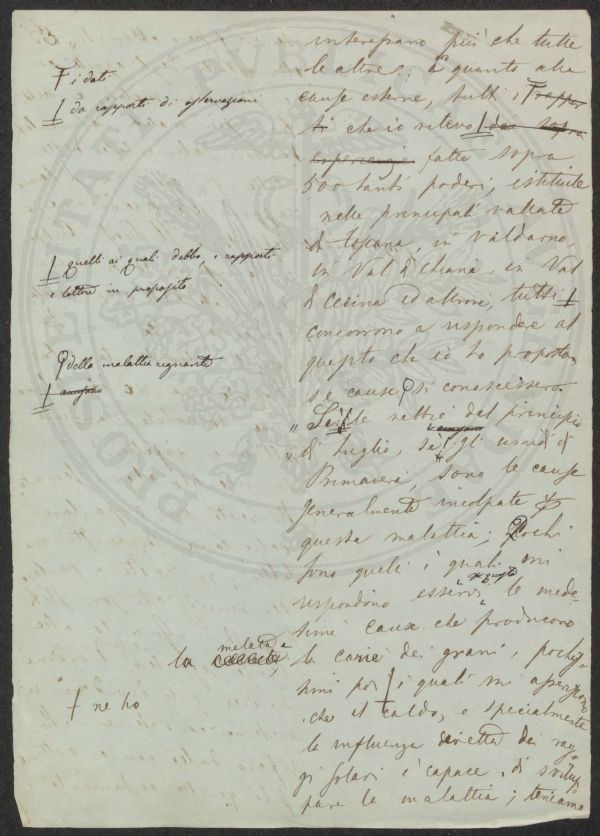 interessano più che tutte
le altre. E quanto alle
cause esterne, tutti i Rappor
ti che io rilevo da sopra
esperienze fatte sopra
500 tanti poderi, istituite
nelle principali vallate
di Toscana, in Valdarno
in Val di Chiana, in Val
di Cecina ed altrove, tutti
concorrono a rispondere al
quesito che io ho proposto
se cause si conoscessero
" Se le nebbie del principio
" di Luglio, se gli umidi di
Primavera, sono le cause
generalmente incolpate di
questa malattia; Pochi
sono quelli i quali mi
a questo
rispondono esservi le mede-
sime cause che producono
la carie dei grani, pochis-
simi poi i quali mi
che il caldo, e specialmente
la influenza diretta dei rag-
gi solari è capace di svilup
pare la malattia; teniamo
i dati
da rapporti di osservazioni
quelli ai quali debbo, e rapporti
e lettere in proposito
della malattia regnante
melata e
la
ne ho
PROSPERITATI PUBLICAE